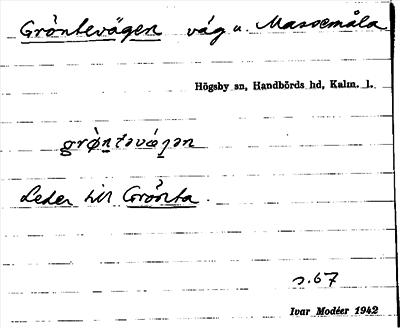 Gröntevägen väg u. Massemåla
Högsby sn, Handbörds hd, Kalm. l.
grø̀ntəvæ̀gən
Leder till Grönta.
s. 67
Ivar Modéer 1942